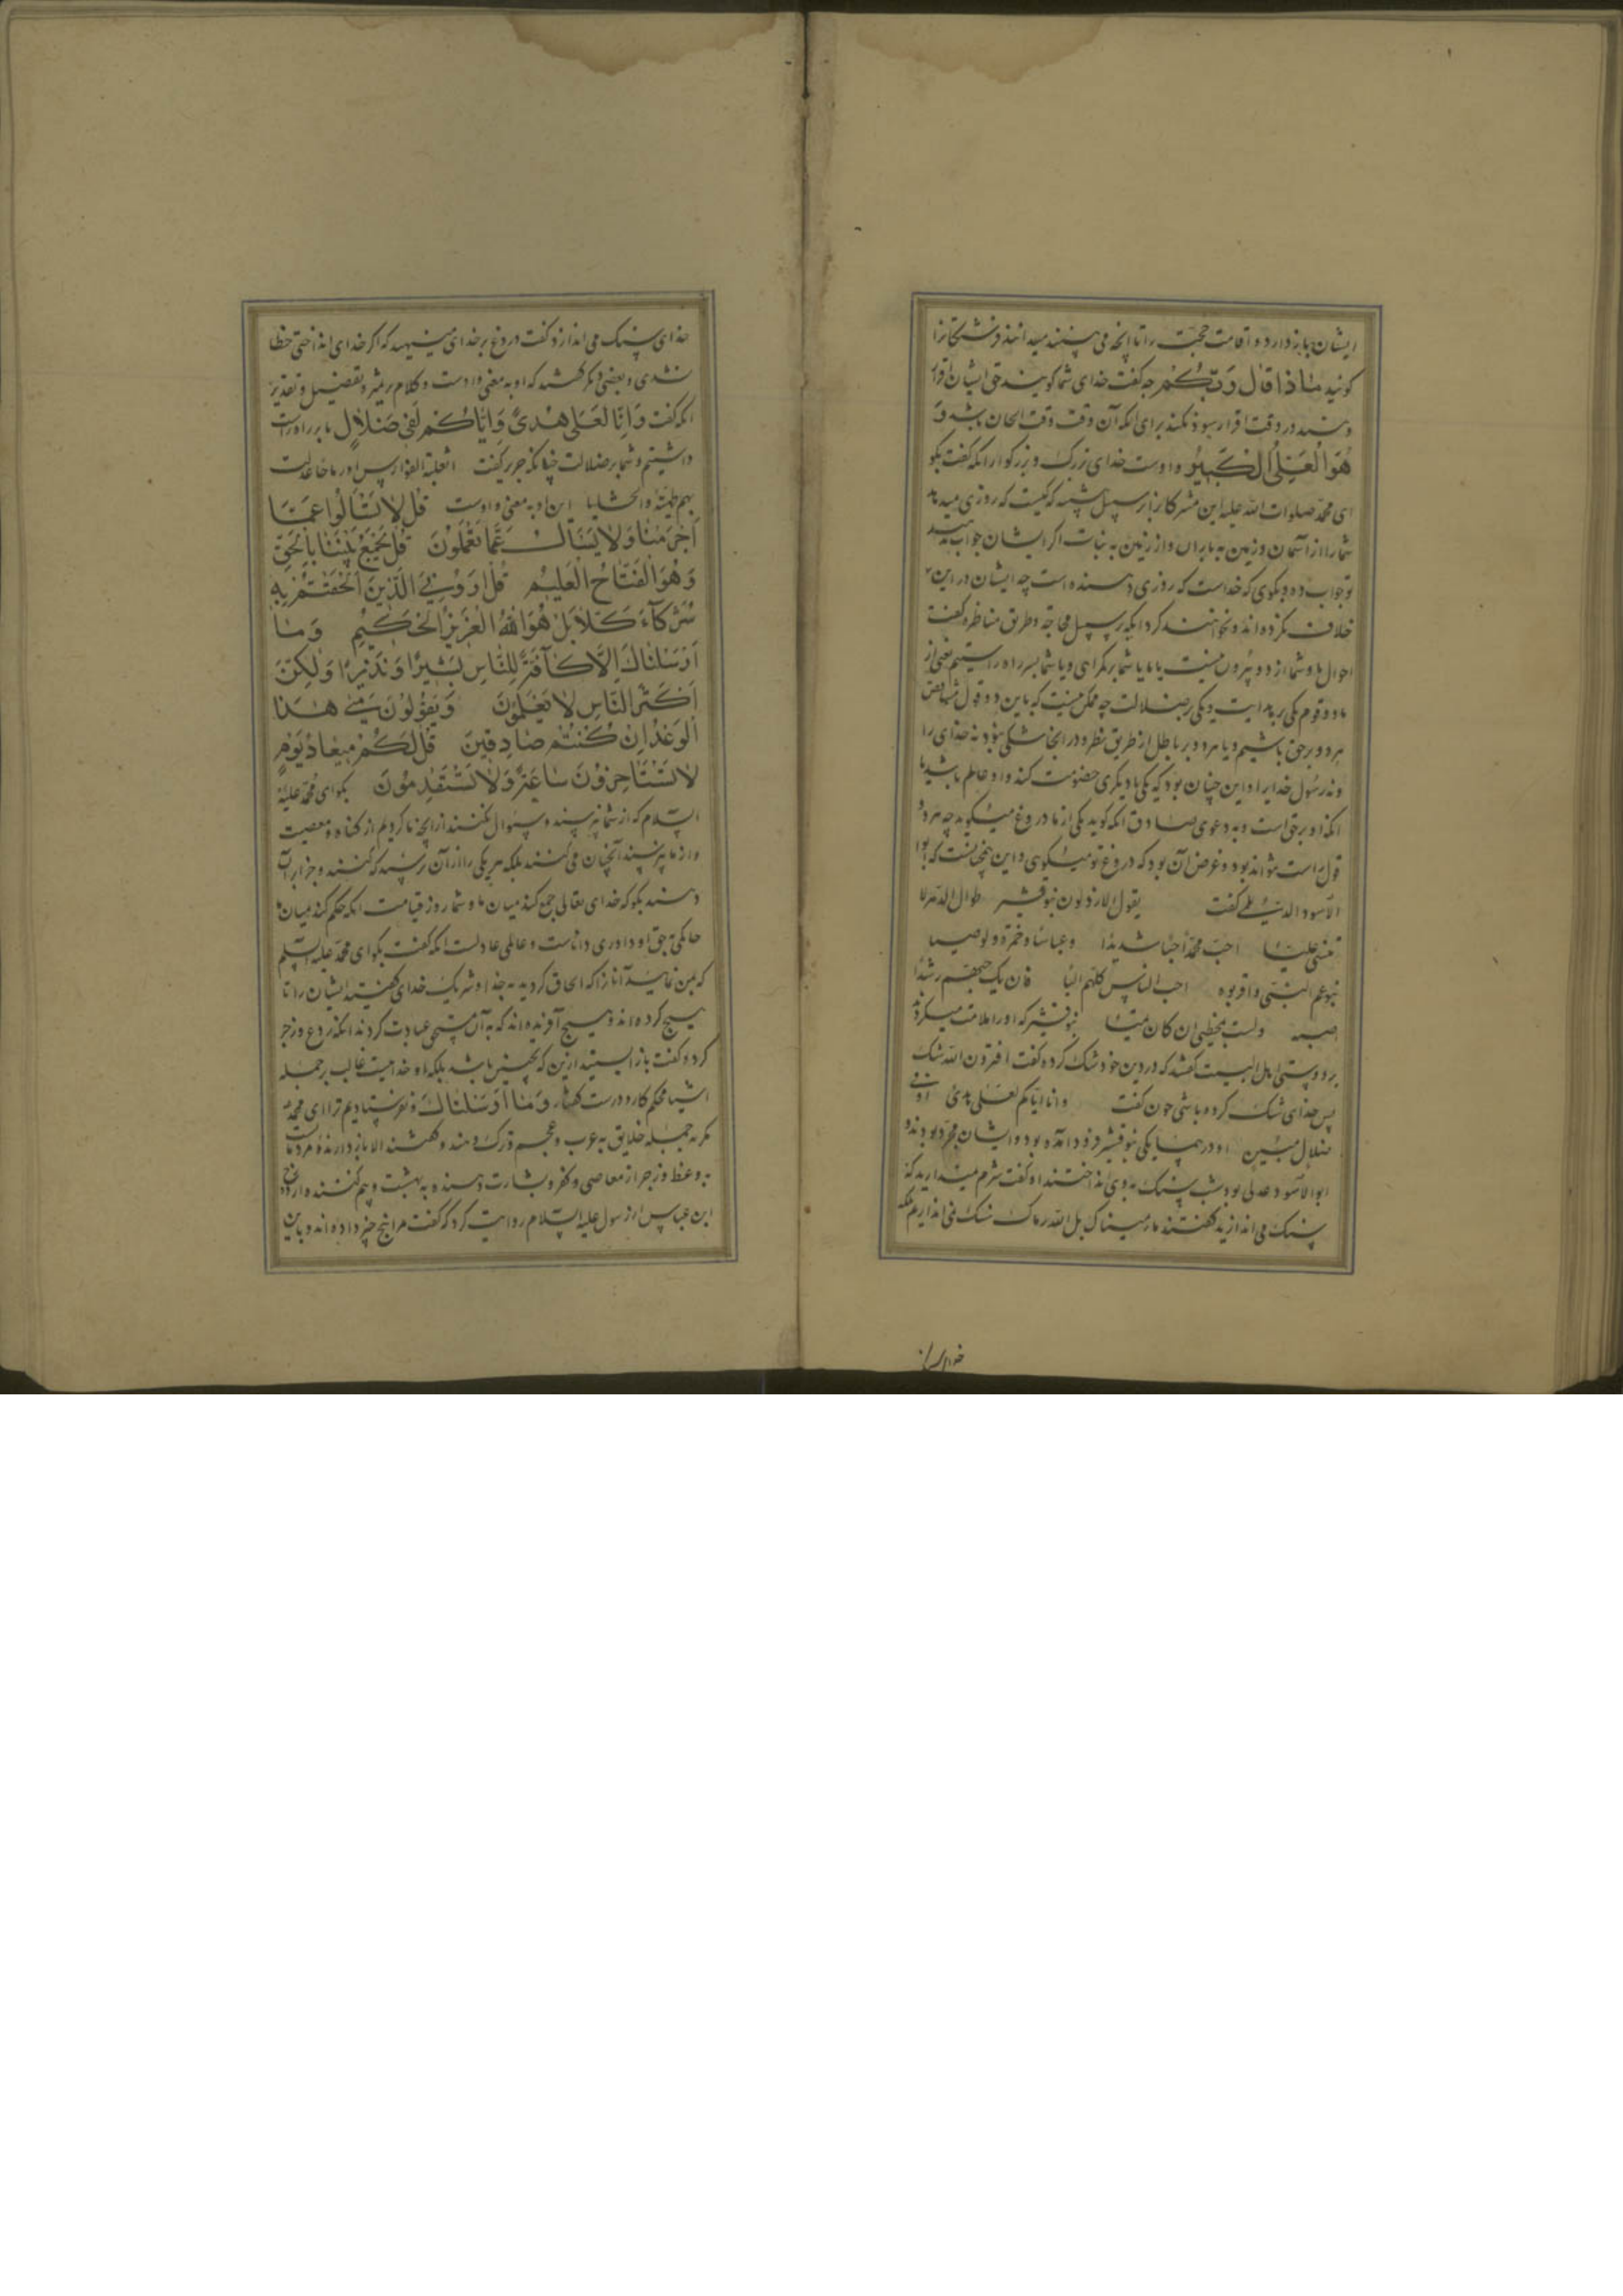 ایشان باز دارد و اقامت حجت را تا آنچه می بینند میدانند فرشتگانرا
کویند ماذا قال ربکم چه کفت خدای شما کویند حق ایشان اقرار
دهند در وقت اقرار سود نکند برای آنکه آن وقت وقت الجان باشد و
هو العلی الکبیر و اوست خدای بزرک و بزرکوار آنکه کفت بکو
ای محمد صلوات الله علیه این مشرکانرا بر سبیل تنبیه که کیست که روزی میدهد
شما را از آسمان و زمین به باران و از زمین به نبات اکر ایشان جواب ندهند
تو جواب ده و بکوی که خداست که روزی دهنده است چه ایشان در این
خلاف نکرده اند و نخواهند کرد آنکه بر سبیل محاجه و طریق مناظره کفت
احوال ما و شما از دو بیرون نیست یا ما یا شما بر کمراهی و یا شما بر راه راستیم یعنی از
ما دو قوم یکی بر هدایت و یکی بر ضلالت چه ممکن نیست که باین دو قول متناقض
هر دو بر حق باشیم و یا هر دو بر باطل از طریق نظر و در اینجا شکی نبود نه خدای را
و نه رسول خدا را و این چنان بود که یکی با دیکری خصومت کند و او عالم باشد با
آنکه او بر حق است و به دعوی صادق آنکه کوید یکی از ما دروغ میکوید چه هر دو
قول راست نتواند بود و غرض آن بود که دروغ تو میکوی و این همچنانست که ابو
الاسود الدئلی کفت یقول الارذلون بنو قشیر طوال الدهر لا
تنسی علیا احب محمدا حبا شدیدا و عباسا و حمزة و الوصیا
بنو عم النبی و اقربوه احب الناس کلهم الیا فان یک حبهم رشدا
اصبه ولست بمخطی ان کان غیا بنو قشیر که او را ملامت میکردند
بر دوستی اهل البیت کفتند که در دین خود شک کرده کفت افترون الله شک
پس خدای شک کرده باشی چون کفت وانا او ایاکم لعلی هدی او فی
ضلال مبین او در همسایکی بنو قشیر فرود آمده بود و ایشان مجرد بودند و
ابو الاسود عدلی بود شب سنک بدوی انداختند او کفت شرم نمیدارید که
سنک می اندازید کفتند ما رمیناک بل الله رماک سنک نمی اندازیم بلکه
خدای سنک
خدای سنک می اندازد کفت دروغ بر خدای مینهید که اکر خدای انداختی خطا
نشدی و بعضی دیکر کفتند که او به معنی واوست و کلام بر نشر و تفصیل و تقدیر
آنکه کفت وانا لعلی هدی وایاکم لفی ضلال ما بر راه راست
داشتیم و شما بر ضلالت چنانکه جریر کفت اثعلبة الفوارس او ریاحا عدلت
بهم طهیة والخشابا این او به معنی واوست قل لا تسألوا عما
اجرمنا ولا یسأل عما تعملون قل یجمع بیننا بالحق
وهو الفتاح العلیم قل ارونی الذین الحقتم به
شرکاء کلا بل هو الله العزیز الحکیم وما
ارسلناک الا کافة للناس بشیرا ونذیرا ولکن
اکثر الناس لا یعلمون ویقولون متی هذا
الوعد ان کنتم صادقین قل لکم میعاد یوم
لا تستاخرون ساعة ولا تستقدمون بکو ای محمد علیه
السلام که از شما نپرسند و سؤال نکنند از آنچه ما کردیم از کناه و معصیت
و از ما نپرسند آنچنان می کنند بلکه هر یکی را از آن پرسند که کنند و جزا بر آن
دهند بکو که خدای تعالی جمع کند میان ما و شما روز قیامت آنکه حکم کند میان ما
حاکمی بحق او داوری داناست و عالمی عادلست آنکه کفت بکو ای محمد علیه السلم
که بمن نمایید آنانرا که الحاق کردید به خدا و شریک خدای کفتید ایشان را تا
هیچ کرده اند و هیچ آفریده اند که به آن مستحق عبادت کردند آنکه ردع و زجر
کرد و کفت باز ایستید ازین که نچنین باشد بلکه او خداییست غالب بر جمله
اشیا محکم کار و درست کفتار وما ارسلناک و نفرستادیم ترا ای محمد
مکر به جمله خلایق به عرب و عجم و ترک و هند و کفتند الا باز دارنده مردمانست
به وعظ و زجر از معاصی و کفر و بشارت دهنده به بهشت و بیم کننده از دوزخ
ابن عباس از رسول علیه السلام روایت کرد که کفت مرا پنج چیز داده اند و باین